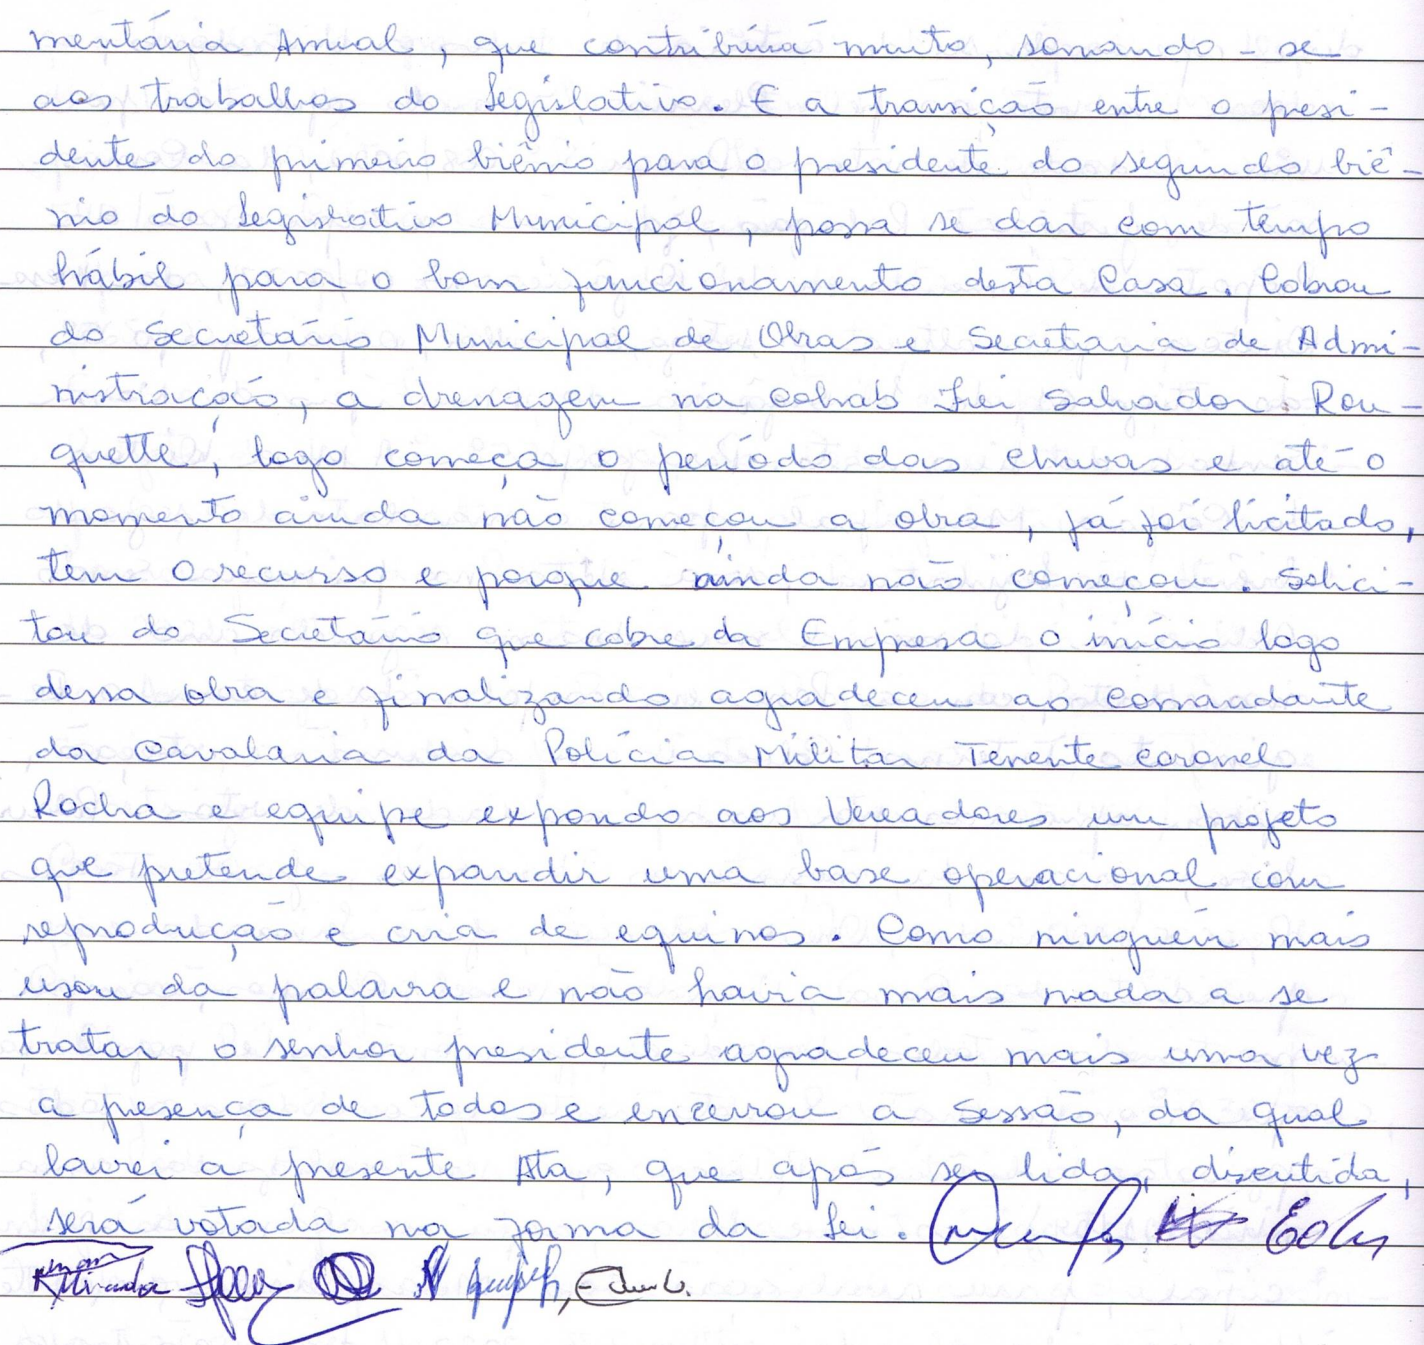 mentária Anual, que contribuirá muito, somando-se
aos trabalhos do Legislativo. E a transição entre o presi-
dente do primeiro biênio para o presidente do segundo biê-
nio do Legislativo Municipal, possa se dar com tempo
hábil para o bom funcionamento desta Casa. Cobrou
do Secretário Municipal de Obras e Secretaria de Admi-
nistração, a drenagem na cohab Frei Salvador Rou-
quette, logo começa o período das chuvas e até o
momento ainda não começou a obra, já foi licitado,
tem o recurso e porque ainda não começou. Solici-
tou do Secretário que cobre da Empresa o início logo
dessa obra e finalizando agradeceu ao Comandante
da Cavalaria da Polícia Militar Tenente Coronel
Rocha e equipe expondo aos Vereadores um projeto
que pretende expandir uma base operacional com
reprodução e cria de equinos. Como ninguém mais
usou da palavra e não havia mais nada a se
tratar, o senhor presidente agradeceu mais uma vez
a presença de todos e encerrou a Sessão, da qual
lavrei a presente Ata, que após ser lida, discutida,
será votada na forma da Lei.